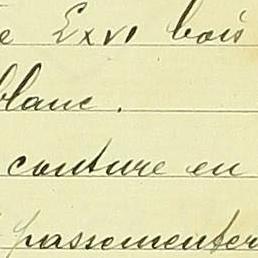 e LXVI bois
blanc.
couture en
passementer